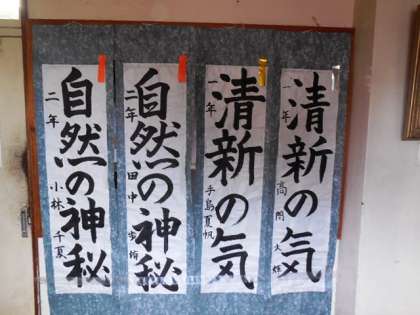 清新の気
一年 高岡 大輝
清新の気
一年 手島夏帆
自然の神秘
二年 田中
自然の神秘
二年 小林 千夏